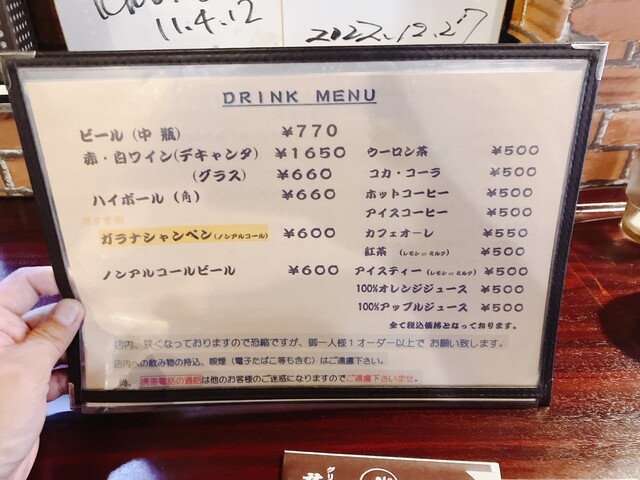 11.4.12
2022.12.27
DRINK MENU
ビール(中 瓶) ¥770
赤・白ワイン(デキャンタ) ¥1650
(グラス) ¥660
ハイボール(角) ¥660
ガラナシャンペン(ノンアルコール) ¥600
ノンアルコールビール ¥600
ウーロン茶 ¥500
コカ・コーラ ¥500
ホットコーヒー ¥500
アイスコーヒー ¥500
カフェオーレ ¥550
紅茶 (レモン or ミルク) ¥500
アイスティー(レモン or ミルク) ¥500
100%オレンジジュース ¥500
100%アップルジュース ¥500
全て税込価格となっております。
店内、狭くなっておりますので恐縮ですが、御一人様1オーダー以上で お願い致します。
店内への飲み物の持込、喫煙(電子たばこ等も含む)はご遠慮下さい。
尚、携帯電話の通話は他のお客様のご迷惑になりますのでご遠慮下さいませ。
グリ